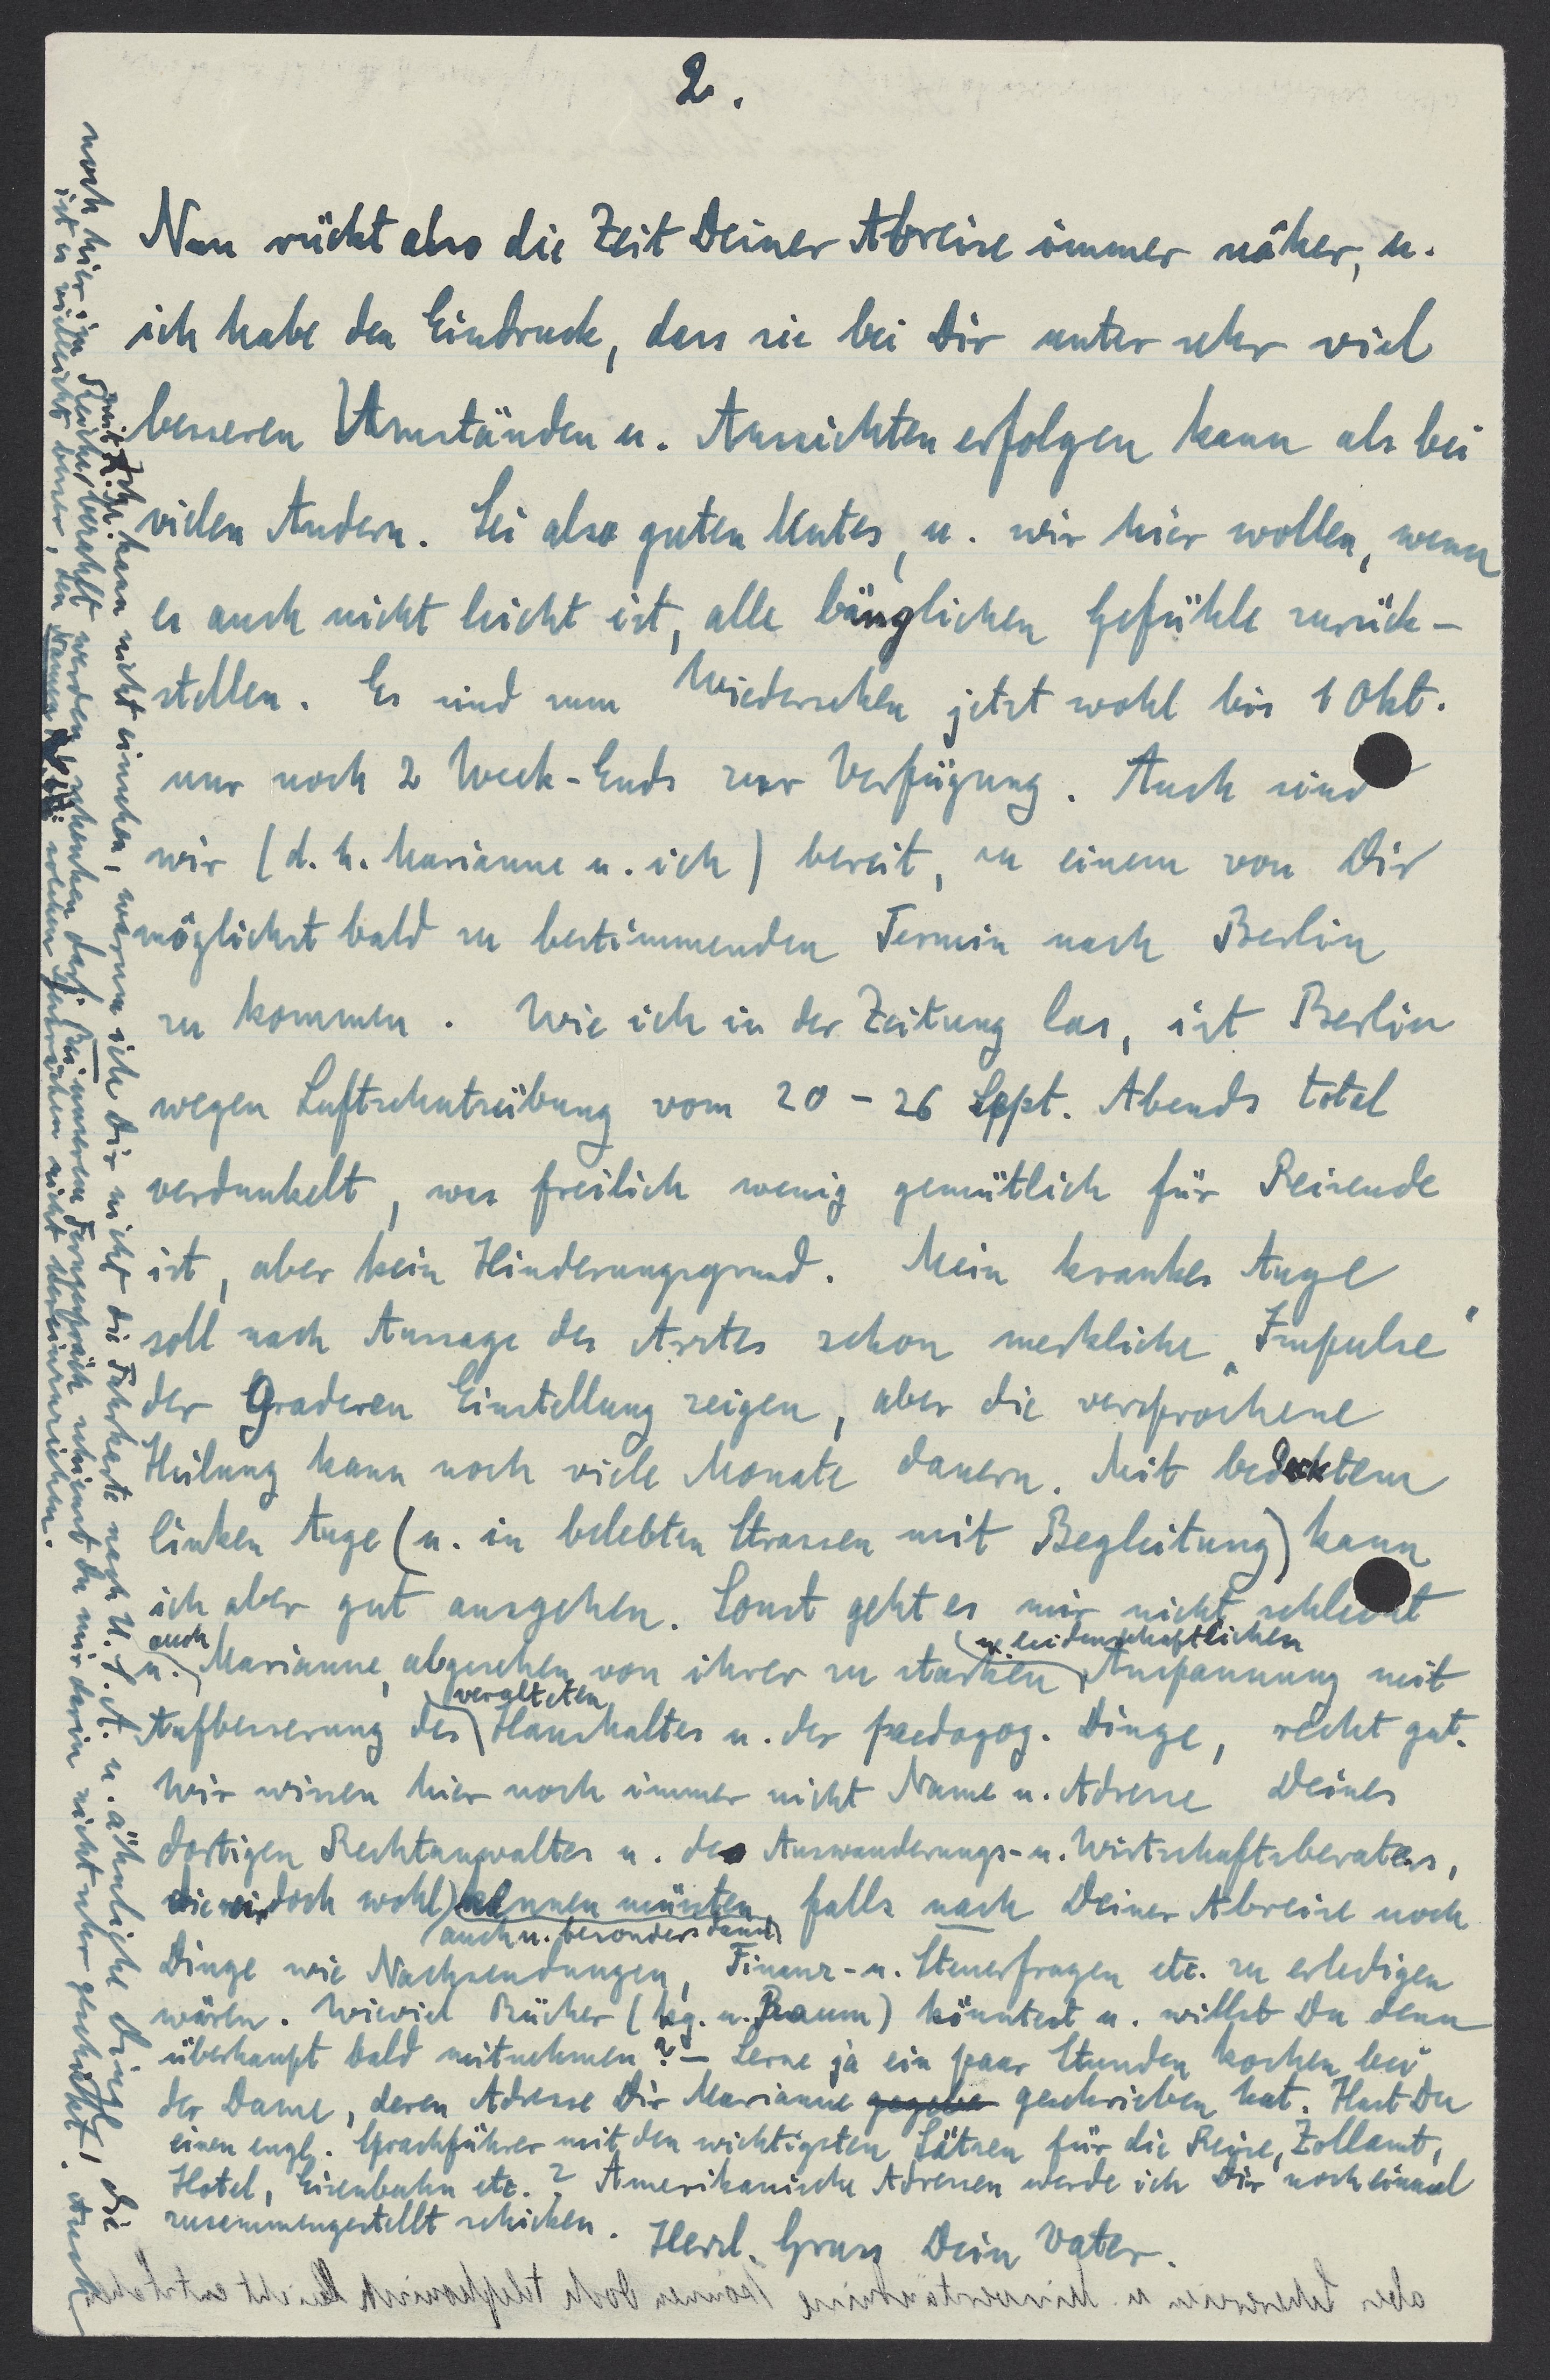 2.
Nun rückt also die Zeit Deiner Abreise immer näher, u.
ich habe den Eindruck, dass sie bei Dir unter sehr viel
besseren Umständen u. Aussichten erfolgen kann als bei
vielen Andern. Sei also guten Mutes, u. wir hier wollen, wenn
es auch nicht leicht ist, alle bänglichen Gefühle zurück-
stellen. Es sind zum Wiedersehen jetzt wohl bis 1 Okt.
nur noch 2 Week-Ends zur Verfügung. Auch sind
wir (d.h. Marianne u. ich) bereit, zu einem von Dir
möglichst bald zu bestimmenden Termin nach Berlin
zu kommen. Wie ich in der Zeitung las, ist Berlin
wegen Luftschutzübung vom 20-26 Sept. Abends total
verdunkelt, was freilich wenig gemütlich für Reisende
ist, aber kein Hinderungsgrund. Mein krankes Auge
soll nach Aussage des Arztes schon merkliche „Impulse"
der Graderen Einstellung zeigen, aber die versprochene
Heilung kann noch viele Monate dauern. Mit bedecktem
linken Auge (u. in belebten Strassen mit Begleitung) kann
ich aber gut ausgehen. Sonst geht es mir nicht schlecht
u. auch Marianne, abgesehen von ihrer zu starken u. leidenschaftlichen Anspannung mit
Aufbesserung des veralteten Haushaltes u. der paedagog. Dinge, recht gut.
Wir wissen hier noch immer nicht Name u. Adresse Deines
dortigen Rechtanwaltes u. des Auswanderungs- u. Wirtschaftsberaters,
die wir doch wohl kennen müssten, auch u. besonders dann falls nach Deiner Abreise noch
Dinge wie Nachsendungen, Finanz- u. Steuerfragen etc. zu erledigen
wären. Wieviel Bücher (kg. u. Raum) könntest u. willst Du denn
überhaupt bald mitnehmen? - Lerne ja ein paar Stunden kochen bei
der Dame, deren Adresse Dir Marianne gegebe geschrieben hat. Hast Du
einen engl. Sprachführer mit den wichtigsten Sätzen für die Reise, Zollamt,
Hotel, Eisenbahn etc.? Amerikanische Adressen werde ich Dir noch einmal
zusammengestellt schicken. Herzl. Gruss Dein Vater.
Ich kann nicht einsehen, warum ich Dir nicht die Fahrkarte nach U.S.A. u. ähnliche Dinge, die
noch hier in Reichsmark bezahlt werden, schenken darf. Bei unserem Ferngespräch schienst Du mir darin nicht sehr geschickt. Auch
ist es vielleicht besser, den Namen bei solchen Gesprächen nicht hereinzuziehen.